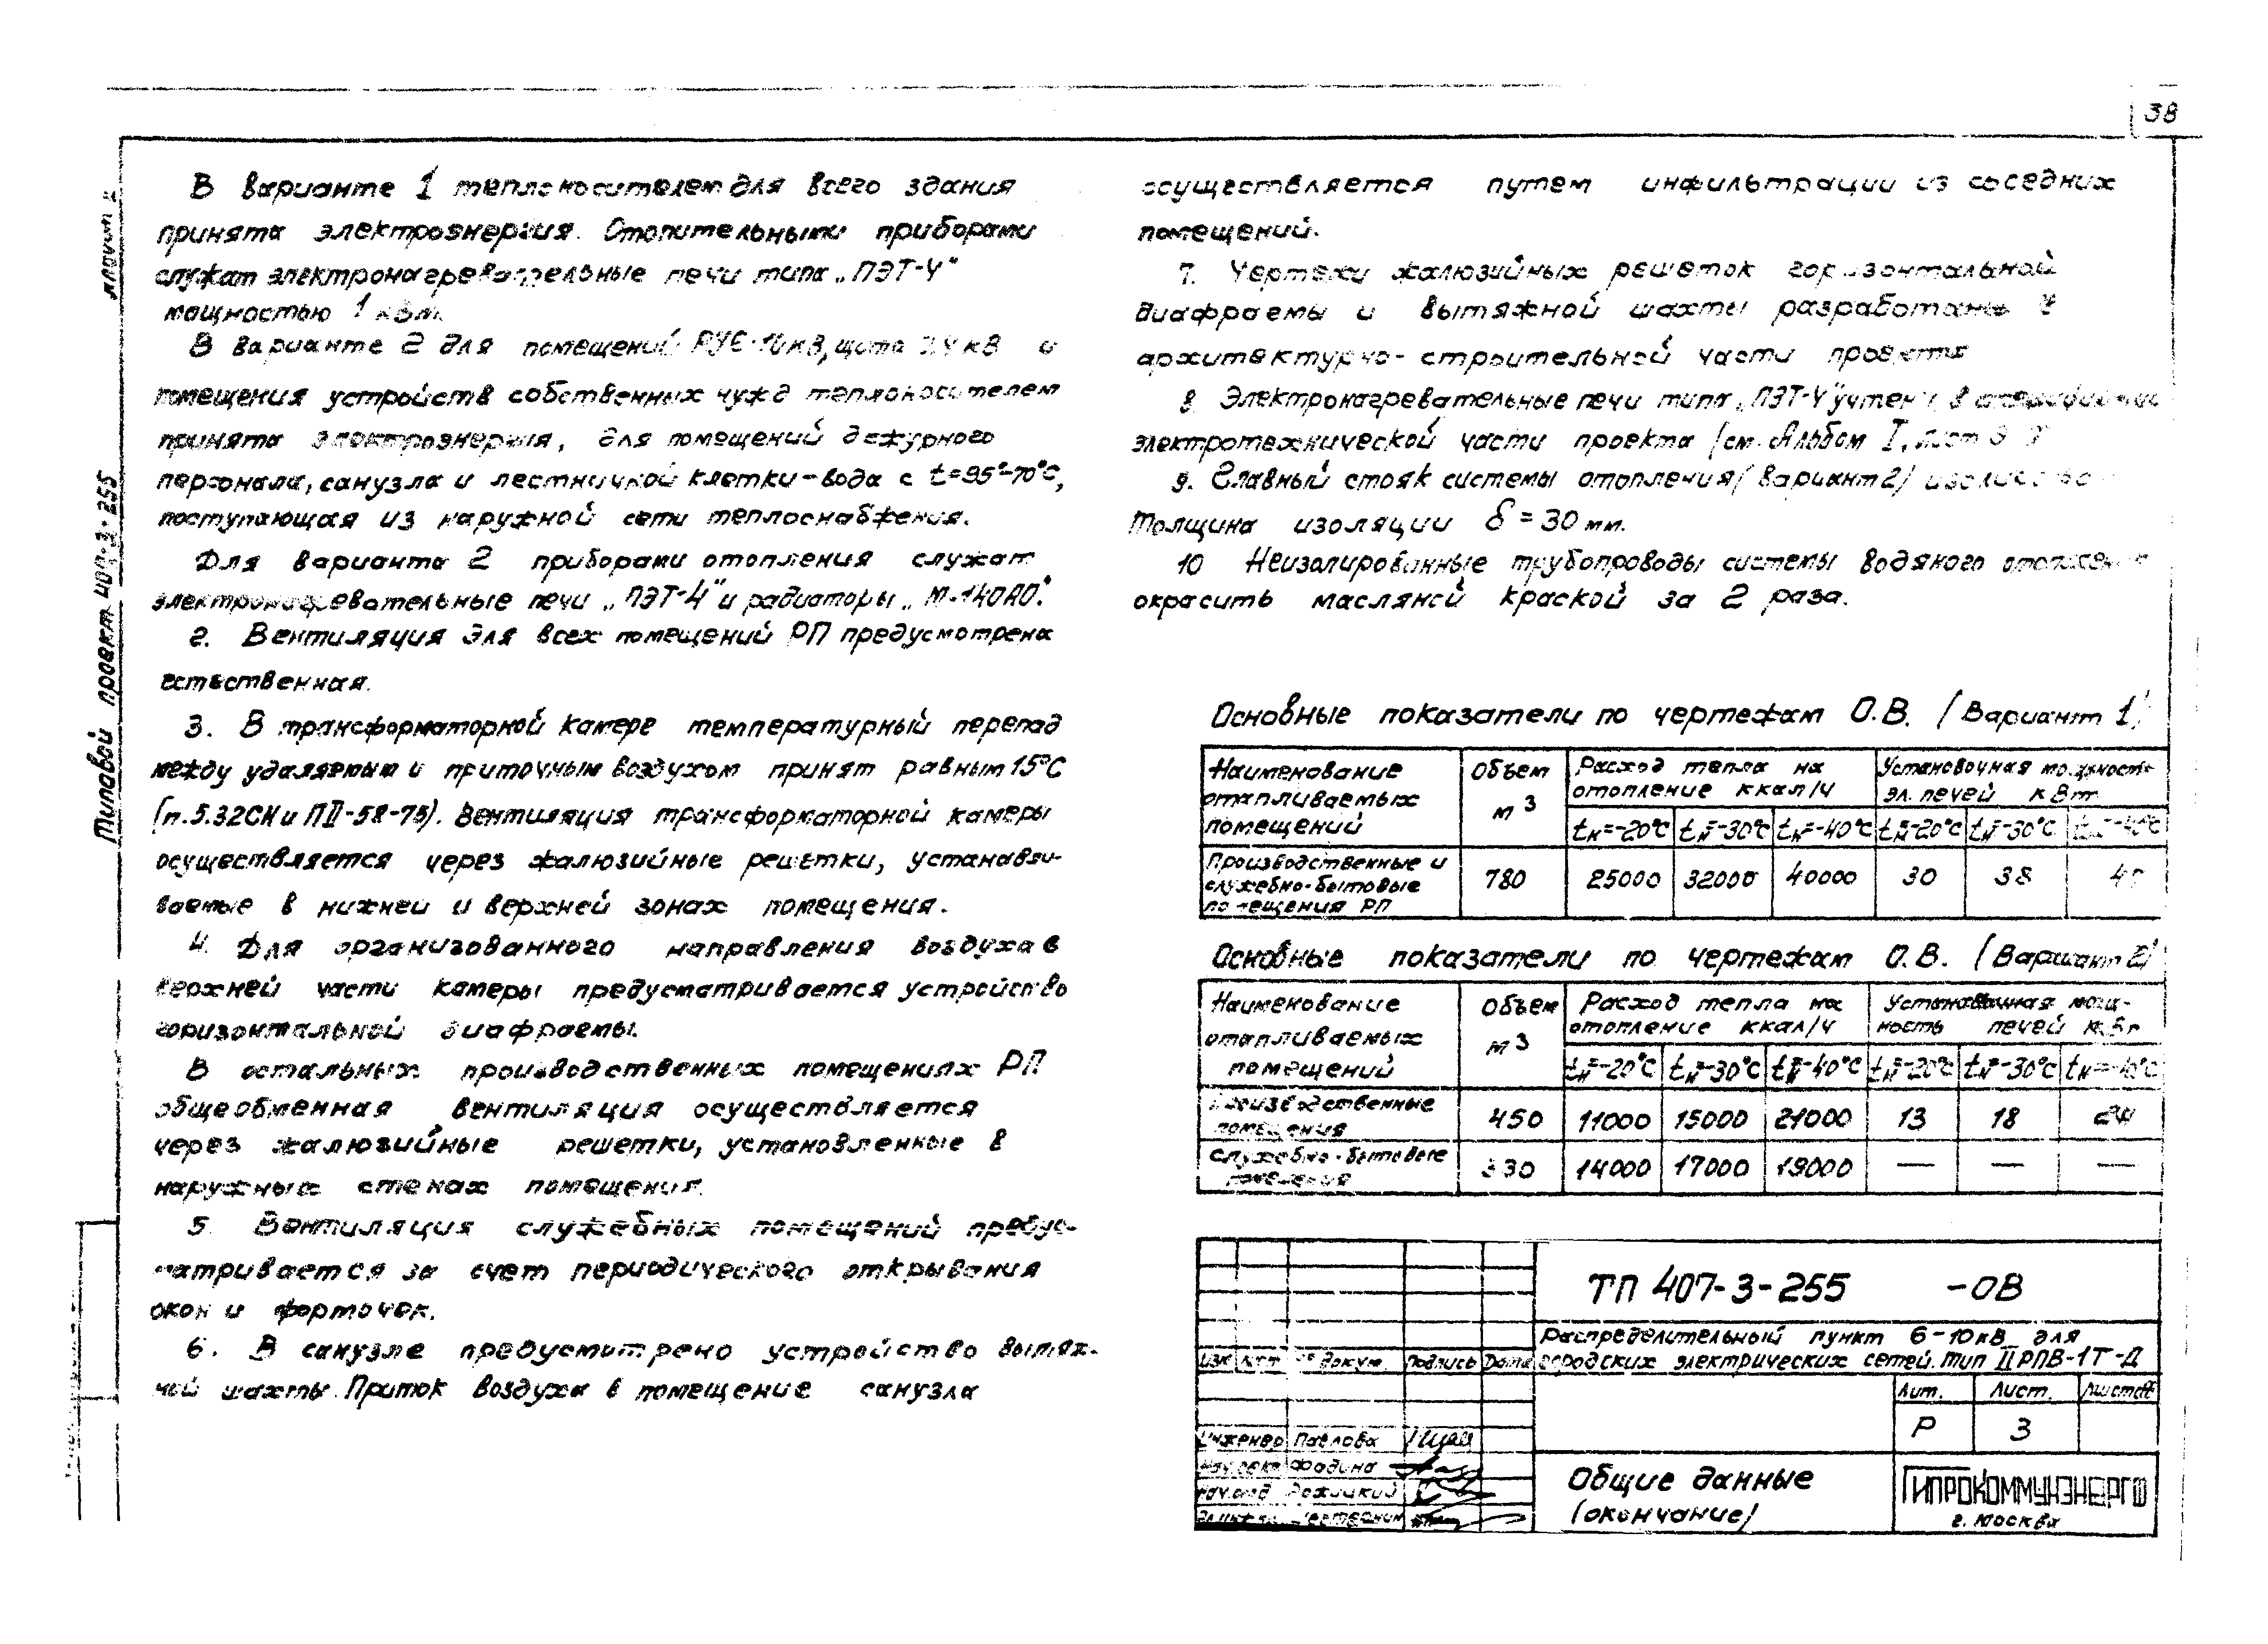 38
В варианте 1 теплоносителем для всего здания
принята электроэнергия. Отопительными приборами
служат электронагревательные печи типа „ПЭТ-4"
мощностью 1 квт.
В варианте 2 для помещений РУ6-10кВ, щита кВ и
помещения устройств собственных нужд теплоносителем
принята электроэнергия, для помещений дежурного
персонала, санузла и лестничной клетки-вода с t=95°-70°С,
поступающая из наружной сети теплоснабжения.
Для варианта 2 приборами отопления служат
электронагревательные печи „ПЭТ-4" и радиаторы „М-140АО".
2. Вентиляция для всех помещений РП предусмотрена
естественная.
3. В трансформаторной камере температурный перепад
между удаляемым и приточным воздухом принят равным 15°С
(п.5.32СНиПII-58-75). Вентиляция трансформаторной камеры
осуществляется через жалюзийные решетки, устанавли-
ваемые в нижней и верхней зонах помещения.
4. Для организованного направления воздуха в
верхней части камеры предусматривается устройство
горизонтальной диафрагмы.
В остальных производственных помещениях РП
общеобменная вентиляция осуществляется
через жалюзийные решетки, установленные в
наружных стенах помещения.
5. Вентиляция служебных помещений предус-
матривается за счет периодического открывания
окон и форточек.
6. В санузле предусмотрено устройство вытяж-
ной шахты. Приток воздуха в помещение санузла
осуществляется путем инфильтрации из соседних
помещений.
7. Чертежи жалюзийных решеток горизонтальной
диафрагмы и вытяжной шахты разработаны в
архитектурно-строительной части проекта
8. Электронагревательные печи типа „ПЭТ-4" учтены в
электротехнической части проекта (см. Альбом I, лист
9. Главный стояк системы отопления /Вариант 2/
Толщина изоляции δ=30мм.
10 Неизолированные трубопроводы системы водяного отопления
окрасить масляной краской за 2 раза.
Основные показатели по чертежам О.В. /Вариант 1/
Наименование отапливаемых помещений Объем м3 Расход тепла на отопление ккал/ч Установочная мощность эл. печей кВт
tн=-20°С tн=-30°С tн=-40°С tн=-20°С tн=-30°С tн=-40°С
Производственные и служебно-бытовые помещения РП 780 25000 32000 40000 30 38
Основные показатели по чертежам О.В. /Вариант 2/
Наименование отапливаемых помещений Объем м3 Расход тепла на отопление ккал/ч Установочная мощ-ность печей кВт
tн=-20°С tн=-30°С tн=-40°С tн=-20°С tн=-30°С tн=-40°С
Производственные помещения 450 11000 15000 21000 13 18 24
Служебно-бытовые помещения 330 14000 17000 19000 — — —
ТП 407-3-255 -ОВ
Распределительный пункт 6-10кв для
городских электрических сетей. Тип II РПВ-1Т-Д
Изм. лист № докум. Подпись Дата
Лит. Лист. Листов
Р 3
Инженер Павлова
Фадина
Нач.отд.
Общие данные
(окончание)
ГИПРОКОММУНЭНЕРГО
г. Москва
Типовой проект 407-3-255